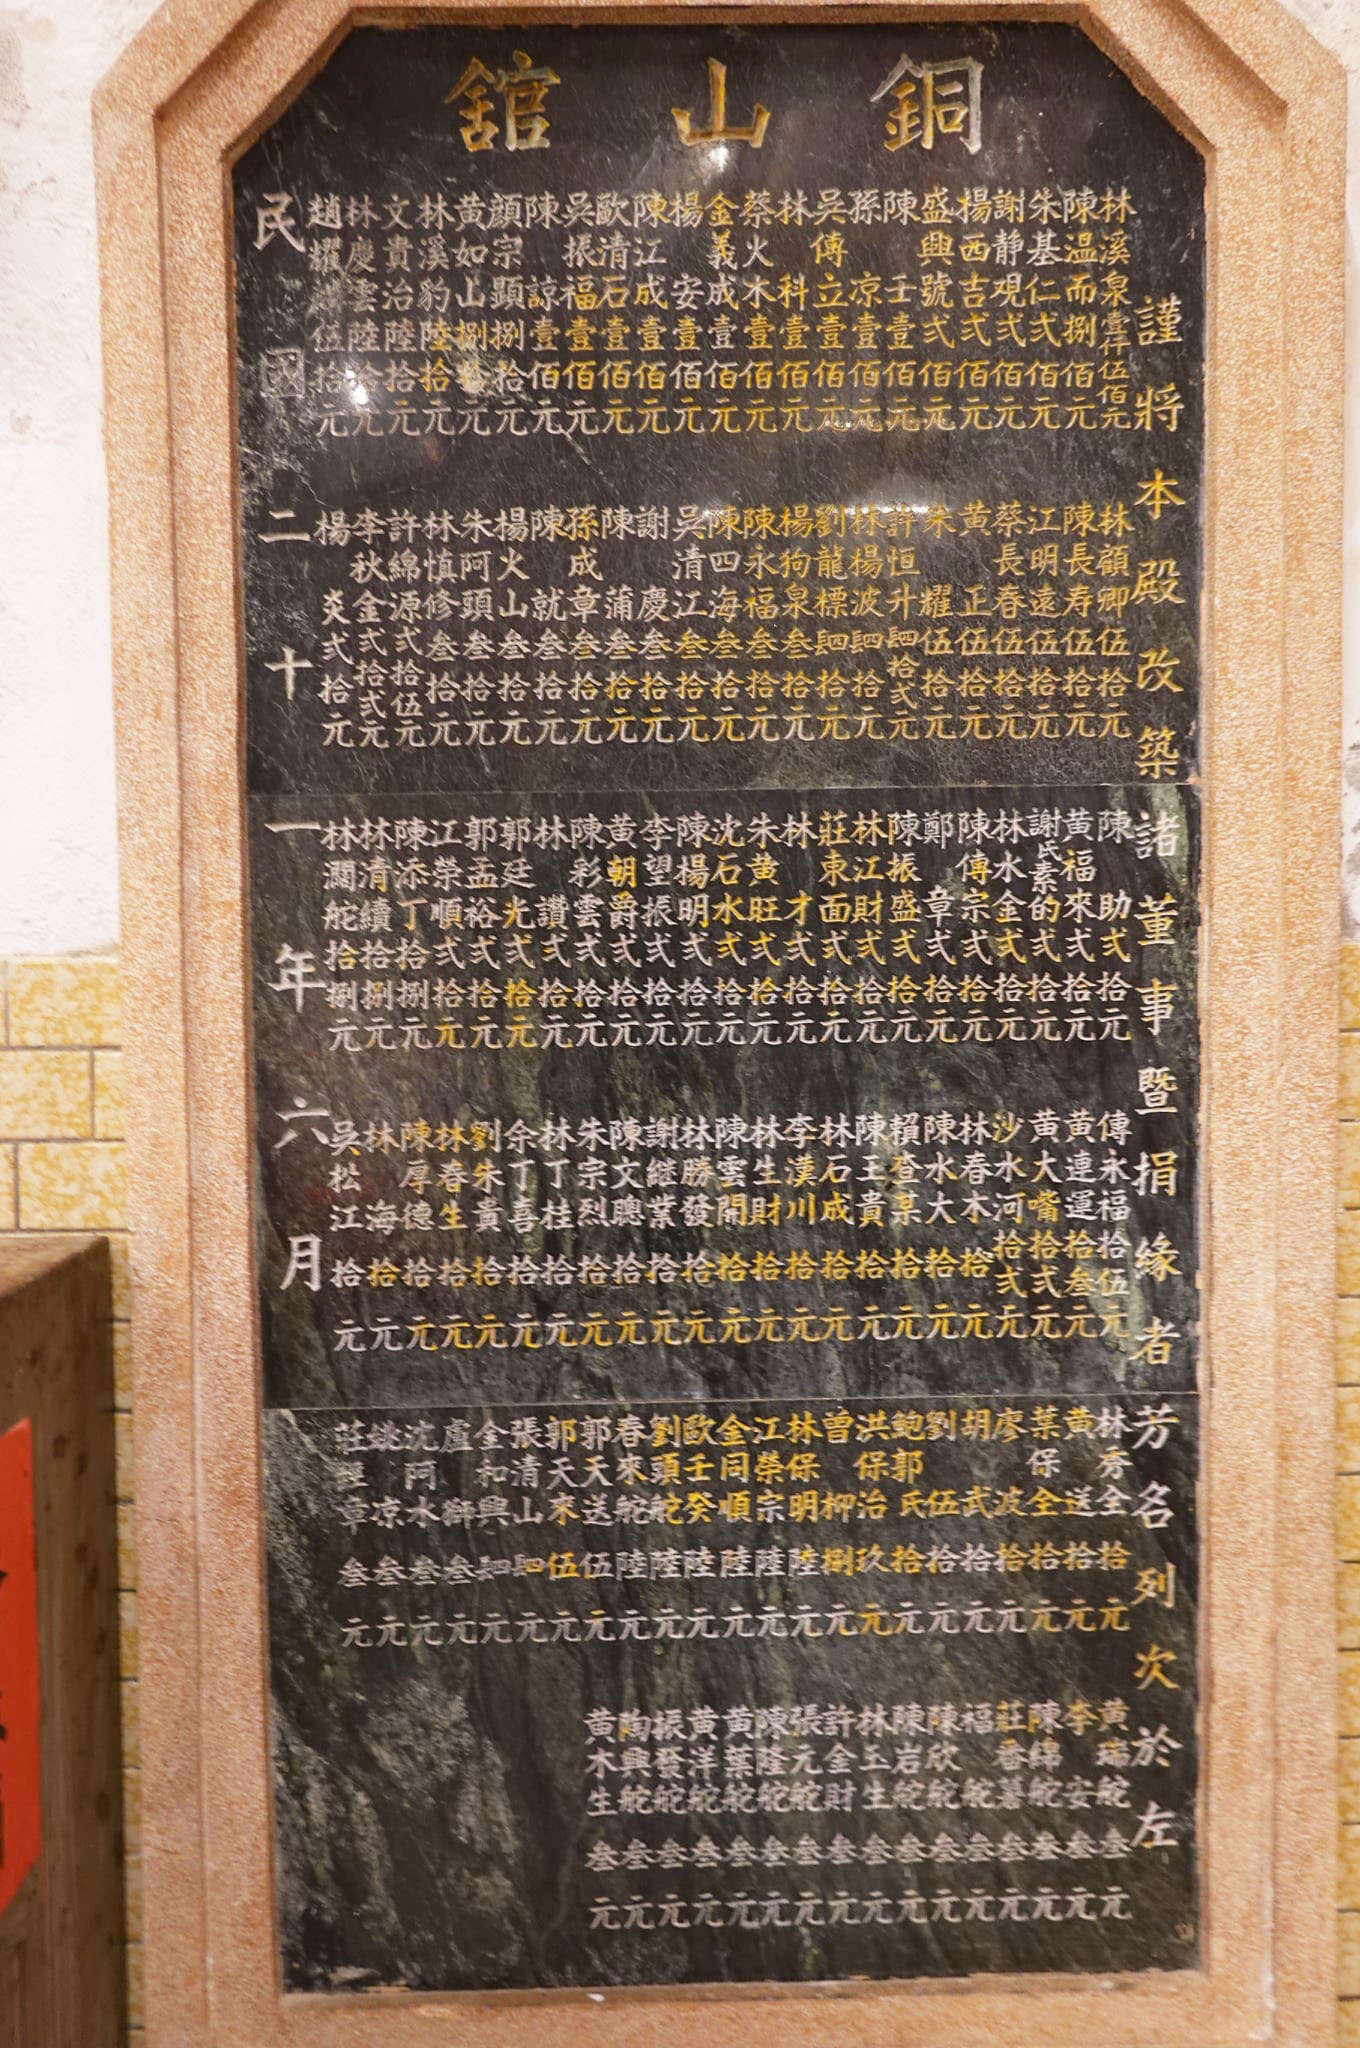 銅山舘
謹將本殿改築諸董事暨捐緣者芳名列次於左
林溪泉壹仟伍佰元
陳温而捌佰元
朱基仁弍佰元
謝静观弍佰元
楊西吉弍佰元
盛興號弍佰元
陳壬壹佰元
孫凉壹佰元
吳傳立壹佰元
林科壹佰元
蔡火木壹佰元
金義成壹佰元
楊安壹佰元
陳江成壹佰元
歐清石壹佰元
吳振福壹佰元
陳諒壹佰元
顏宗顯捌拾元
黄如山捌拾元
林溪豹陸拾元
文貴治陸拾元
林慶雲陸拾元
趙耀伍拾元
林顧卿伍拾元
陳長寿伍拾元
江明遠伍拾元
蔡長春伍拾元
黄正伍拾元
朱耀伍拾元
許恒升肆拾弍元
林楊波肆拾元
劉龍標肆拾元
楊狗泉叁拾元
陳永福叁拾元
陳四海叁拾元
吳清江叁拾元
謝慶叁拾元
陳蒲叁拾元
孫成章叁拾元
陳就叁拾元
楊火山叁拾元
朱阿頭叁拾元
林慎修叁拾元
許綿源弍拾伍元
李秋金弍拾弍元
楊炎弍拾元
陳助弍拾元
黄福來弍拾元
謝氏素的弍拾元
林水金弍拾元
陳傳宗弍拾元
鄭章弍拾元
陳振盛弍拾元
林江財弍拾元
莊東面弍拾元
林才弍拾元
朱黄旺弍拾元
沈石水弍拾元
陳楊明弍拾元
李望振弍拾元
黄朝爵弍拾元
陳彩雲弍拾元
林讚弍拾元
郭廷光弍拾元
郭孟裕弍拾元
江榮順弍拾元
陳添丁拾捌元
林清續拾捌元
林濶舵拾捌元
傳永福拾伍元
黄連運拾叁元
黄大嘴拾弍元
沙水河拾弍元
林春木拾元
陳水大拾元
賴查某拾元
陳王貴拾元
林石成拾元
李漢川拾元
林生財拾元
陳雲開拾元
林勝發拾元
謝継業拾元
陳文聰拾元
朱宗烈拾元
林丁桂拾元
余丁喜拾元
劉朱貴拾元
林春生拾元
陳厚德拾元
林海拾元
吳松江拾元
林秀全拾元
黄送拾元
葉保全拾元
廖波拾元
胡武拾元
劉伍拾元
鮑郭氏拾元
洪保治玖元
曾柳捌元
林保明陸元
江榮宗陸元
金同順陸元
歐壬癸陸元
劉頭舵陸元
春來舵陸元
郭天送伍元
郭天來伍元
張清山肆元
金和興肆元
盧獅叁元
沈阿水叁元
姚凉叁元
莊章叁元
黄瑞舵叁元
李安叁元
陳綿舵叁元
莊番薯叁元
福舵叁元
陳欣舵叁元
陳岩舵叁元
林玉生叁元
許金財叁元
張元舵叁元
陳隆舵叁元
黄葉舵叁元
黄洋舵叁元
振發舵叁元
陶興舵叁元
黄木生叁元
民國二十一年六月